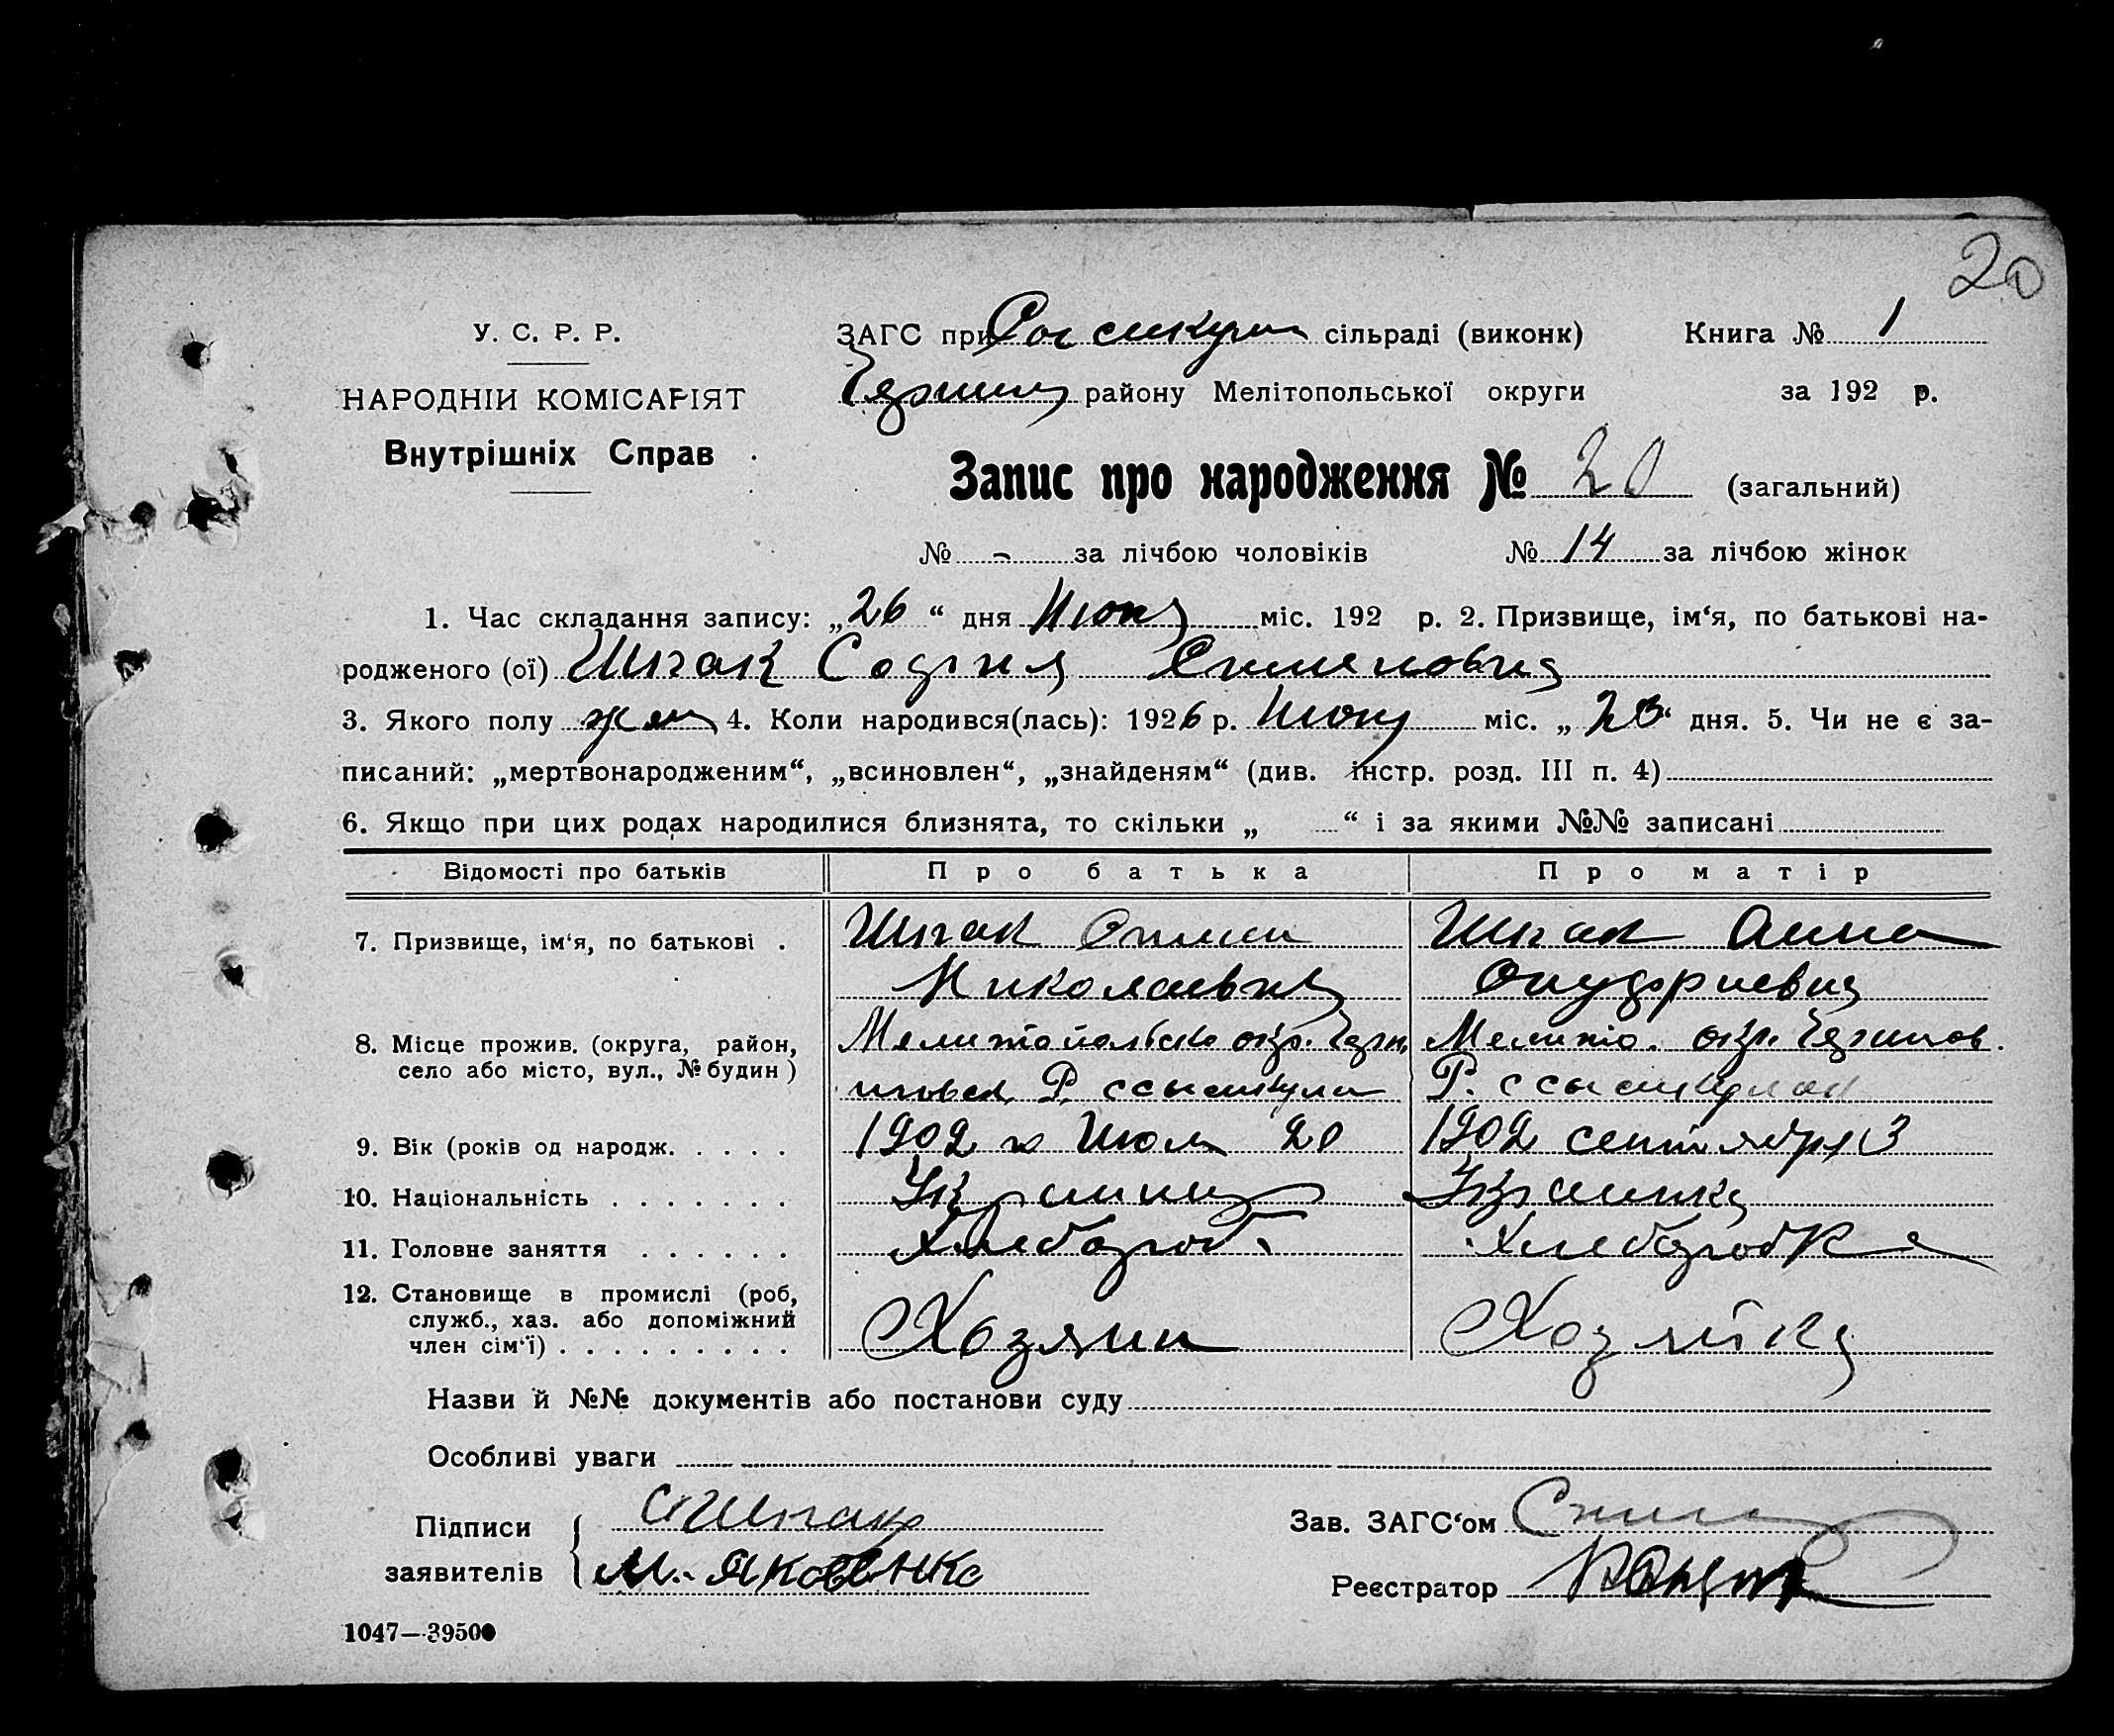 20
У. С. Р. Р.
ЗАГС при сільраді (виконк) Книга № 1
НАРОДНІЙ КОМІСАРІЯТ
району Мелітопольської округи за 192 р.
Внутрішніх Справ
Запис про народження № 20 (загальний)
№ - за лічбою чоловіків № 14 за лічбою жінок
1. Час складання запису: „26“ дня Июня міс. 192 р. 2. Призвище, ім‘я, по батькові на-
родженого (ої) Шпак София
3. Якого полу жен 4. Коли народився(лась): 1926 р. Июня міс. „ “ дня. 5. Чи не є за-
писаний: „мертвонародженим“, „всиновлен“, „знайденям“ (див. інстр. розд. III п. 4)
6. Якщо при цих родах народилися близнята, то скільки „ “ і за якими №№ записані
Відомості про батьків Про батька Про матір
7. Призвище, ім‘я, по батькові . Шпак Шпак Анна
Николаевич Онуфриевна
8. Місце прожив. (округа, район, село або місто, вул., № будин) Мелитопольско окр. Мелито. окр.
Р. Р.
9. Вік (років од народж. . . . . 1902 Июля 20 1902 сентября 3
10. Національність . . . . . . . Украинец Украинка
11. Головне заняття . . . . . . Хлебороб. Хлеборобка
12. Становище в промислі (роб, служб., хаз. або допоміжний член сім‘ї) . . . . . . . . . Хозяин Хозяйка
Назви й №№ документів або постанови суду
Особливі уваги
Підписи Шпак Зав. ЗАГС‘ом
заявителів М. Яковенко Реєстратор
1047—39500